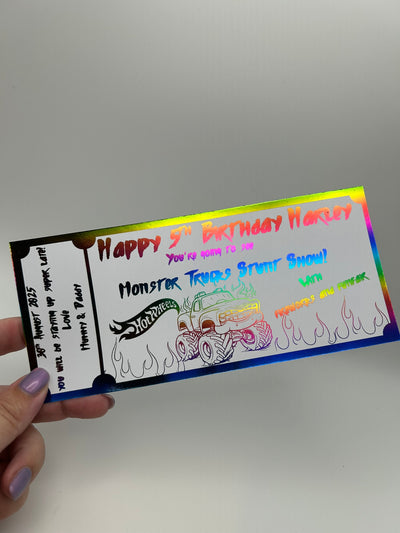 Happy 5th Birthday Harley
You're going to see
Monster Trucks Stunt Show!
With
Hot Wheels
30th August 2025
You will be staying up super late!
Love
Mummy & Daddy